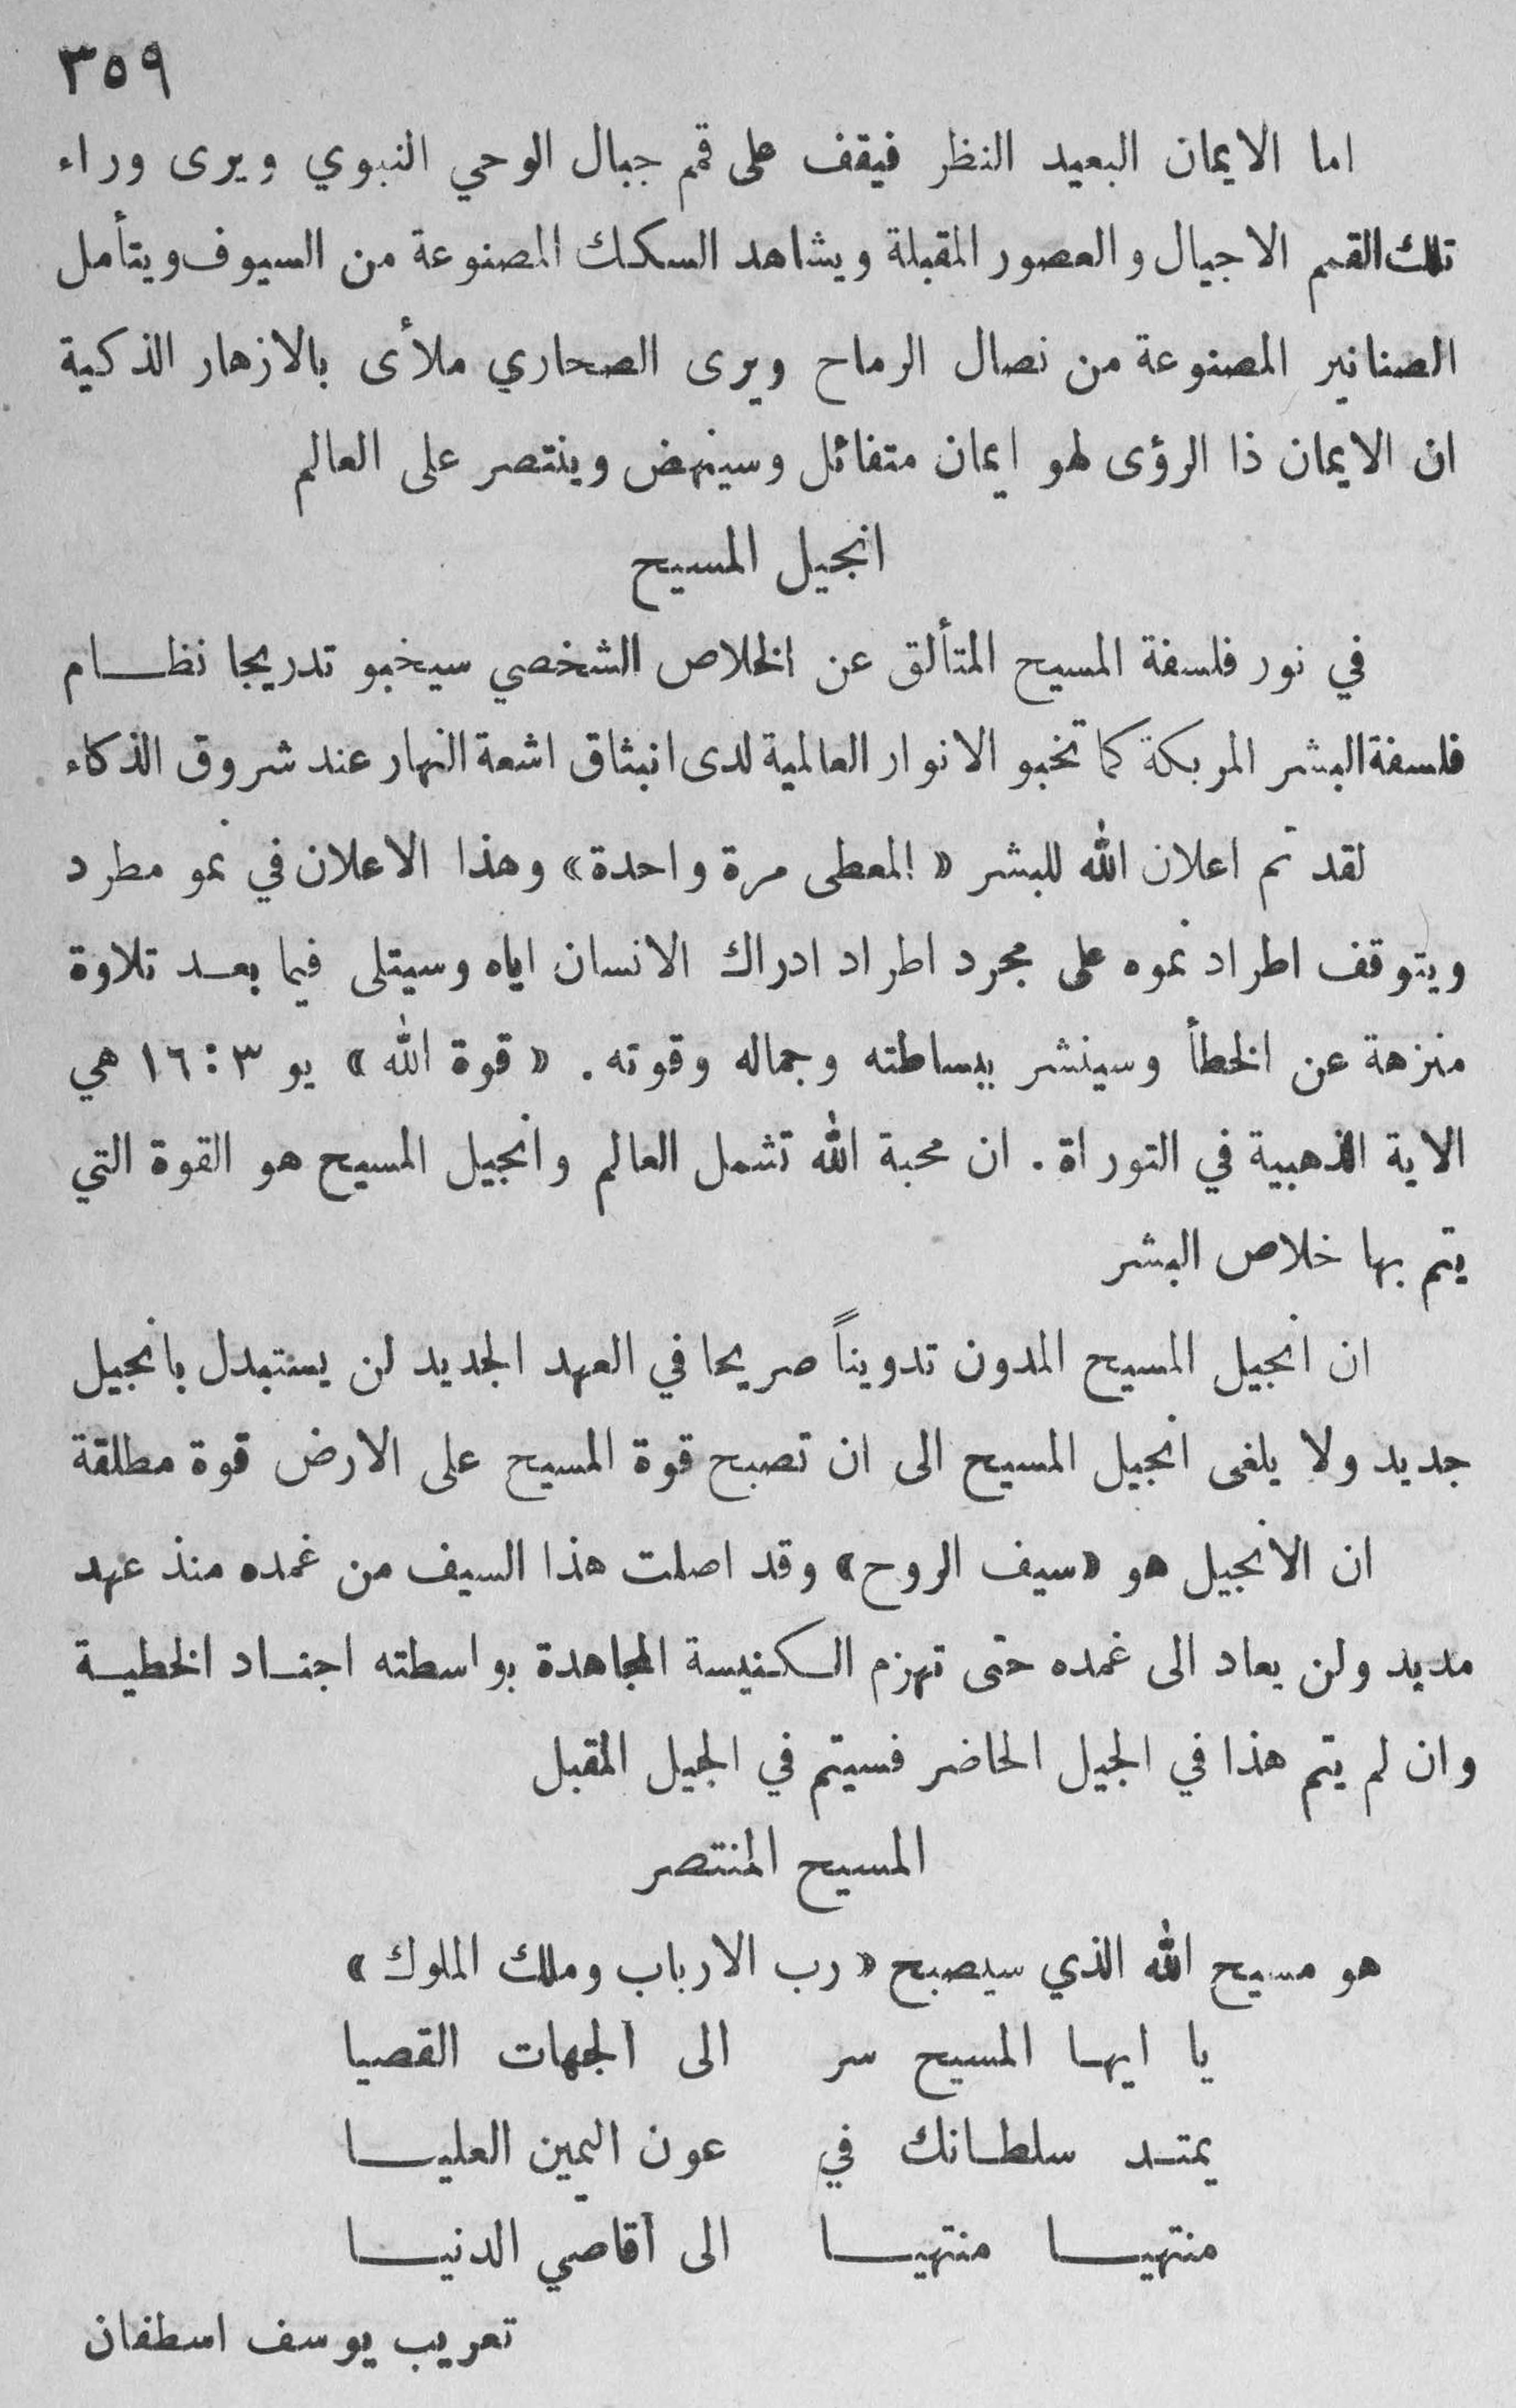 ٣٥٩
اما الايمان البعيد النظر فيقف على قمم جبال الوحي النبوي ويرى وراء
تلك القمم الاجيال والعصور المقبلة ويشاهد السكك المصنوعة من السيوف ويتأمل
الصنانير المصنوعة من نصال الرماح ويرى الصحاري ملأى بالازهار الذكية
ان الايمان ذا الرؤى لهو ايمان متفائل وسينهض وينتصر على العالم
انجيل المسيح
في نور فلسفة المسيح المتألق عن الخلاص الشخصي سيخبو تدريجا نظام
فلسفة البشر المربكة كما تخبو الانوار العالمية لدى انبثاق اشعة النهار عند شروق الذكاء
لقد تم اعلان الله للبشر «المعطى مرة واحدة» وهذا الاعلان في نمو مطرد
ويتوقف اطراد نموه على مجرد اطراد ادراك الانسان اياه وسيتلى فيما بعد تلاوة
منزهة عن الخطأ وسينشر ببساطته وجماله وقوته. «قوة الله» يو ٣:١٦ هي
الاية الذهبية في التوراة. ان محبة الله تشمل العالم وانجيل المسيح هو القوة التي
يتم بها خلاص البشر
ان انجيل المسيح المدون تدويناً صريحا في العهد الجديد لن يستبدل بانجيل
جديد ولا يلغى انجيل المسيح الى ان تصبح قوة المسيح على الارض قوة مطلقة
ان الانجيل هو «سيف الروح» وقد اصلت هذا السيف من غمده منذ عهد
مديد ولن يعاد الى غمده حتى تهزم الكنيسة المجاهدة بواسطته اجناد الخطية
وان لم يتم هذا في الجيل الحاضر فسيتم في الجيل المقبل
المسيح المنتصر
هو مسيح الله الذي سيصبح «رب الارباب وملك الملوك»
يا ايها المسيح سر الى الجهات القصيا
يمتد سلطانك في عون اليمين العليا
منتهيا منتهيا الى أقاصي الدنيا
تعريب يوسف اسطفان